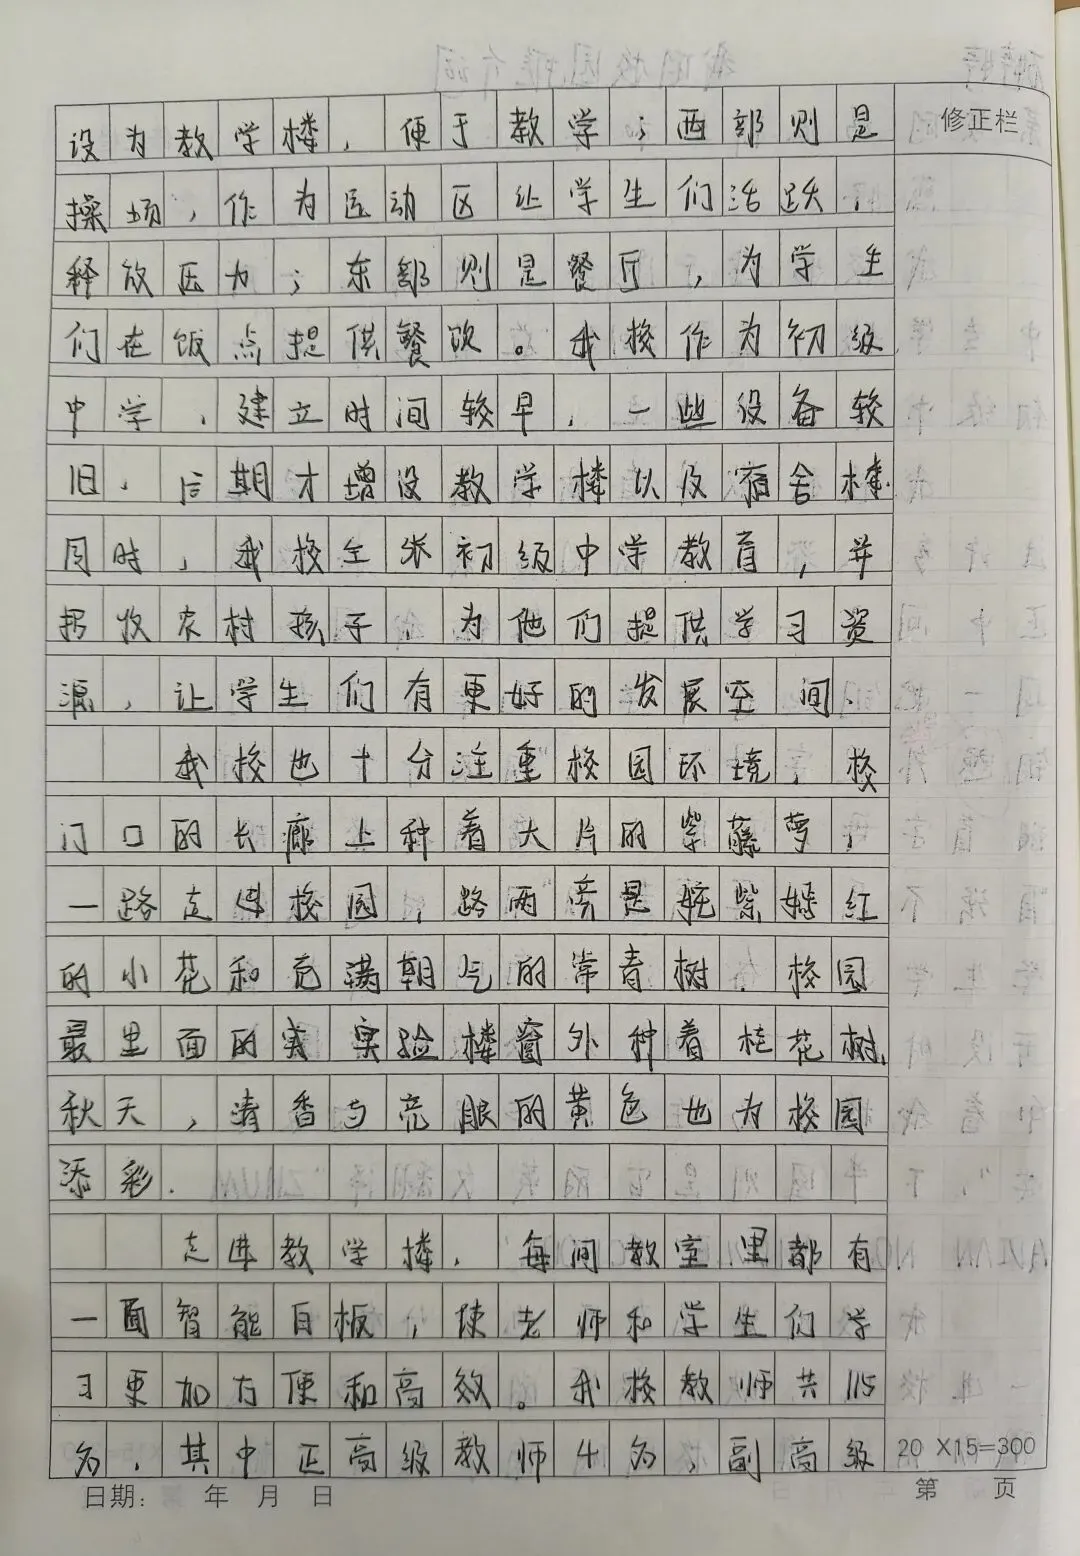 设为教学楼，便于教学；西部则是
操场，作为运动区让学生们活跃，
释放压力；东部则是餐厅，为学生
们在饭点提供餐饮。我校作为初级
中学，建立时间较早，一些设备较
旧，后期才增设教学楼以及宿舍楼.
同时，我校主张初级中学教育，并
招收农村孩子，为他们提供学习资
源，让学生们有更好的发展空间.
我校也十分注重校园环境，校
门口的长廊上种着大片的紫藤萝，
一路走进校园，路两旁是姹紫嫣红
的小花和充满朝气的常青树.校园
最里面的实实验楼窗外种着桂花树,
秋天，清香与亮眼的黄色也为校园
添彩.
走进教学楼，每间教室里都有
一面智能白板，使老师和学生们学
习更加方便和高效。我校教师共115
名，其中正高级教师4名，副高级
修正栏
20X15=300
日期： 年 月 日
第 页